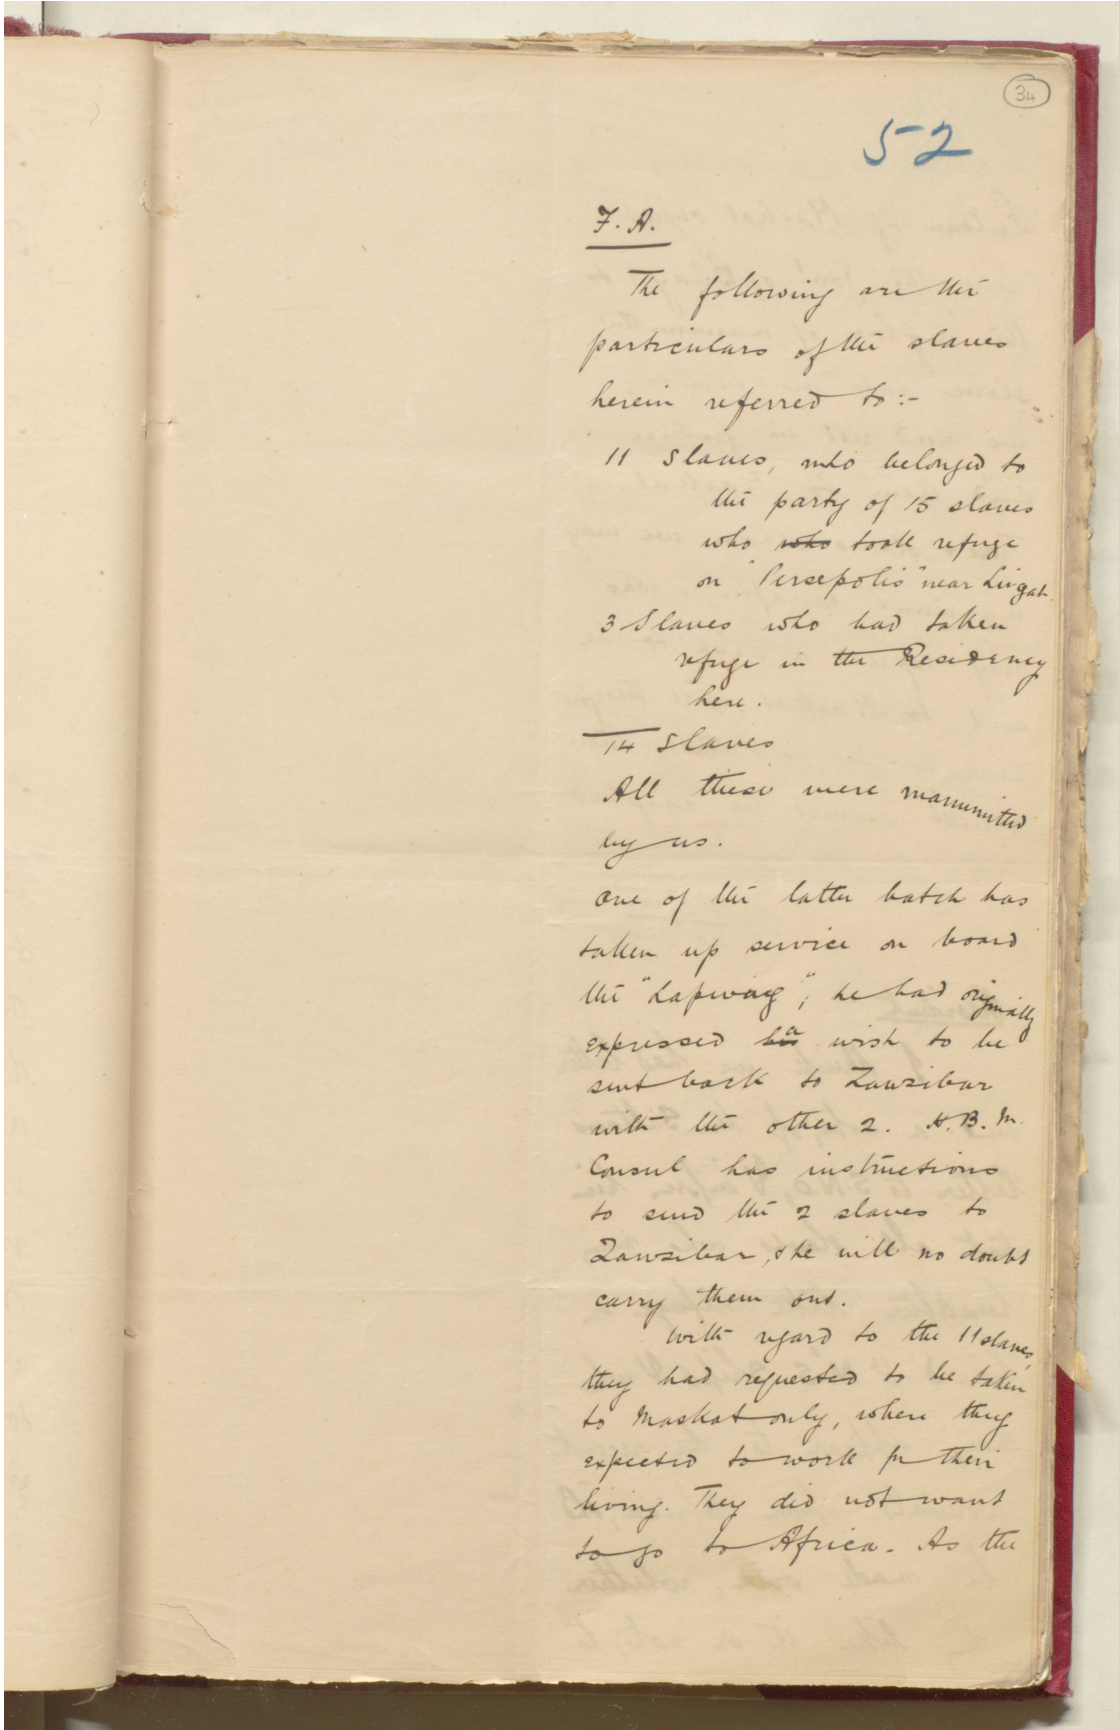 34
52
F. A.
The following are the
particulars of the slaves
herein referred to :-
11 slaves, who belonged to
the party of 15 slaves
who who took refuge
on "Persepolis" near Lingah.
3 Slaves who had taken
refuge in the Residency
here.
14 slaves
All these were manumitted
by us.
One of the latter batch has
taken up service on board
the "Lapwing"; he had originally
expressed his a wish to be
sent back to Zanzibar
with the other 2. H.B.M.
Consul has instructions
to send the 2 slaves to
Zanzibar, & he will no doubt
carry them out.
With regard to the 11 slaves,
they had requested to be taken
to Maskat only, where they
expected to work for their
living. They did not want
to go to Africa. As the